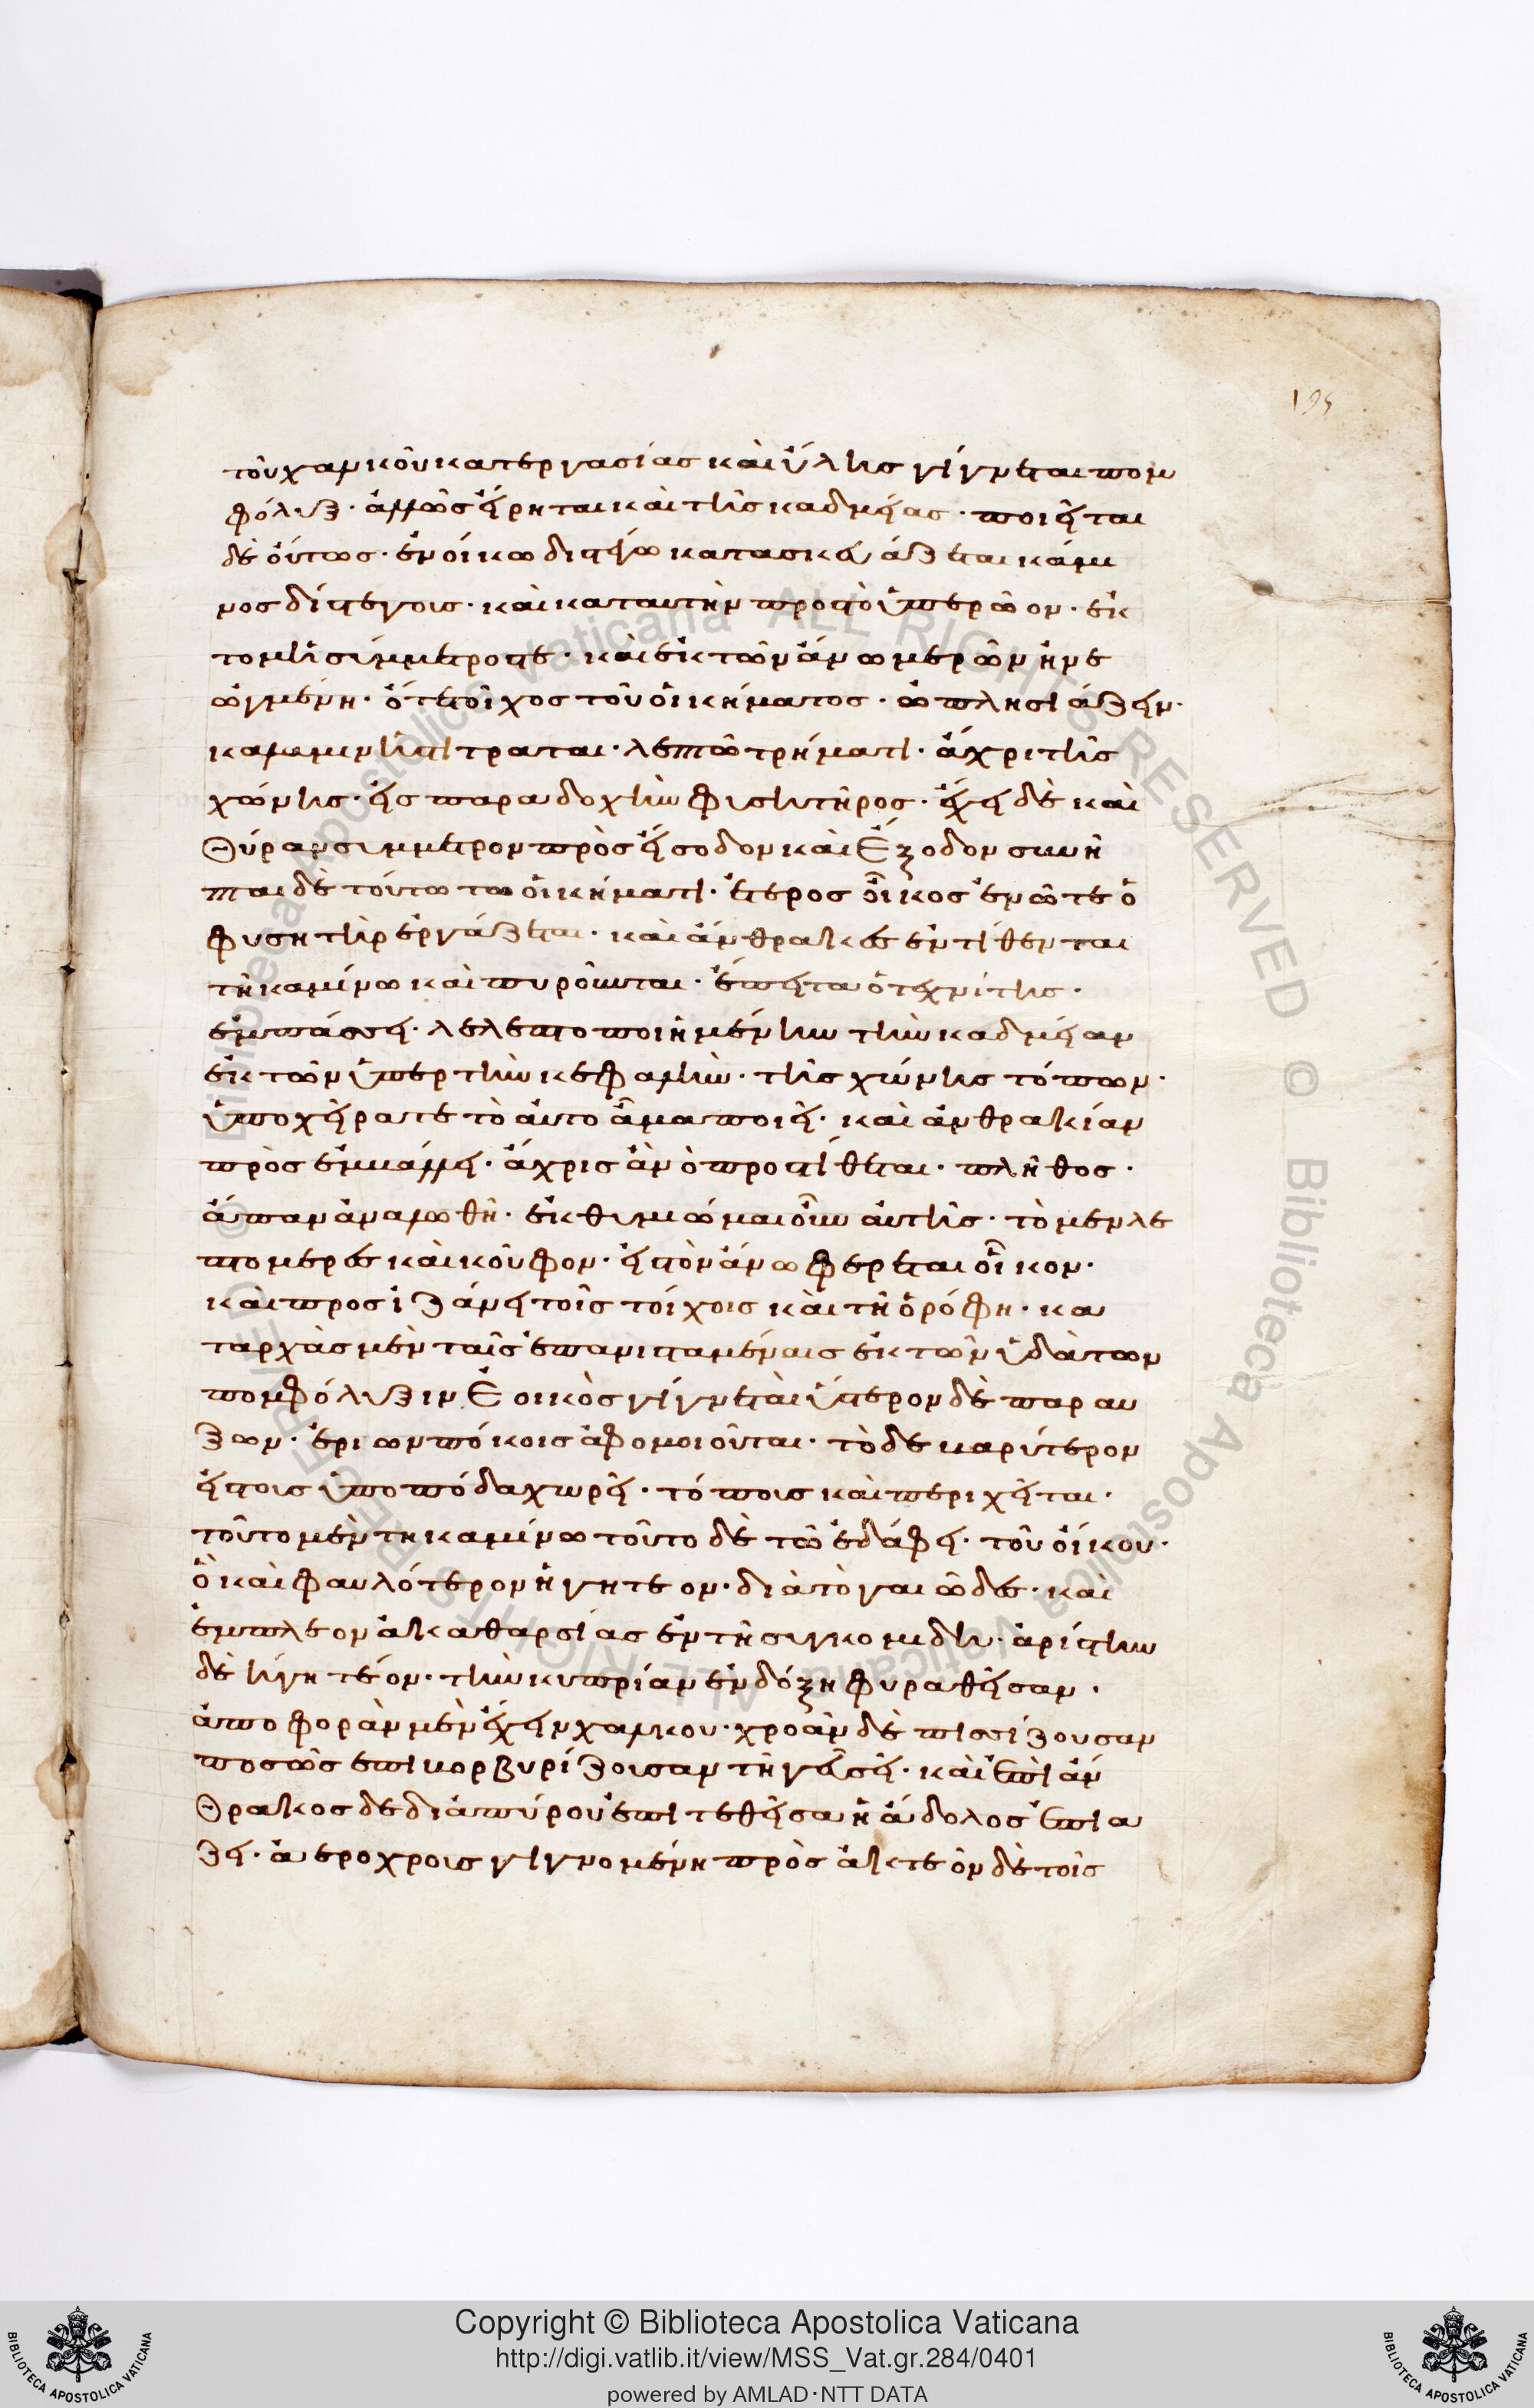 195
τοῦ χαλκοῦ κατεργασίας καὶ ὕλης γίγνεται πομ
φόλυξ· ἀλλῶς ἔιρηται καὶ τῆς καδμείας· ποιεῖται
δὲ οὕτως· ἐν οἴκω διστέγω κατασκευάζεται κάμι
νος δίστεγοις· καὶ κατα αυτὴν προς τὸ ὑπερῶον· ἐκ
τομὴ σύμμετροςτε· καὶ ἐκ τῶν ἄνω μερῶν ἠνε
ωγμένη· ὅτε τοῖχος τοῦ οἰκήματος· ὦ πλησιάζειν·
καμμινῆ τίτραται· λεπτῶ τρήματι· ἄχρι τῆς
χώνης· εἰς παραδοχὴν φυσητῆρος· ἔχει δὲ καὶ
θύραν σύμμετρον πρὸς εἴσοδον καὶ ἔξοδον συνῆ
πται δὲ τούτω τω οἰκήματι· ἕτερος οἶκος ἐν ὧ τε ὁ
φυσητὴρ ἐργάζεται· καὶ ἄνθρακες ἐντίθενται
τῆ καμίνω καὶ πυροῦνται· ἔπειτα ὁ τεχνίτης·
ἐμπάσσει· λελεπτοποιημένην τὴν καδμείαν
ἐκ τῶν ὑπερ τὴν κεφαλὴν· τῆς χώνης τόπων·
ὑποχεῖρατε τὸ ἀυτο ἅμα ποιεῖ· καὶ ἀνθρακίαν
πρὸς ἐμβάλλει· ἄχρις ἂν ὁ προστίθεται· πλῆθος·
ἅπαν ἀναλωθῆ· ἐκθυμιώμαι οὖν ἀυτῆς· τὸ μεν λε
πτομερὲς καὶ κοῦφον· εἰς τὸν ἄνω φέρεται οἶκον·
καὶ προσιζάνει τοῖς τοίχοις καὶ τῆ ὀρόφη· κα
ταρχὰς μὲν ταῖς ἐπανισταμέναις ἐκ τῶν ὑδάτων
πομφόλυξιν ἐοικὸς γίγνεται ὕστερον δὲ παραυ
ξων· ἐριων πόκοις ἀφομοιοῦται· τὸ δε βαρύτερον
εἰς τοις ὑποπόδα χωρεῖ· τόποις καὶ περιχεῖται·
τοῦτο μὲν τη καμίνω τοῦτο δὲ τῶ ἐδάφει· τοῦ οἴκου·
ὃ καὶ φαυλότερον ἡγητεον· διὰ τὸ γαιῶδες· καὶ
ἔμπλεον ἀκαθαρσίας ἐν τῆ συγκομιδη· ἀρίστην
δὲ ἡγητέον· τὴν κυπρίαν ἐν δόξη φυραθεῖσαν·
ἀποφορὰν μὲν ἔχειν χαλκου· χροὰν δὲ πισσίζουσαν
ποσῶς ἐπιβορβυρίζουσαν τῆ γεύσει· καὶ ἐπὶ ἄν
θρακος δε διαπύρου ἐπιτεθεῖσα ἡ ἄδολος ἐπια
ζει· ἀεροχροις γιγνομένη πρὸς ἀκτεὸν δὲ τοῖς
Copyright © Biblioteca Apostolica Vaticana
http://digi.vatlib.it/view/MSS_Vat.gr.284/0401
powered by AMLAD·NTT DATA